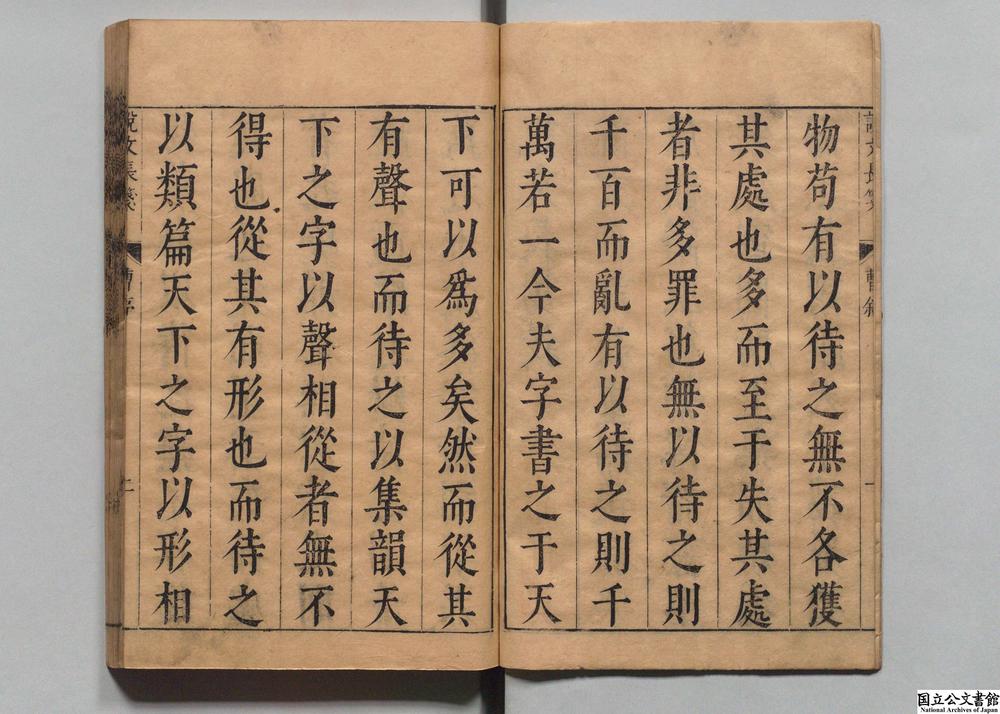 物苟有以待之無不各獲
其處也多而至于失其處
者非多罪也無以待之則
千百而亂有以待之則千
萬若一今夫字書之于天
下可以爲多矣然而從其
有聲也而待之以集韻天
下之字以聲相從者無不
得也從其有形也而待之
以類篇天下之字以形相
說文長箋
二
国立公文書館
National Archives of Japan